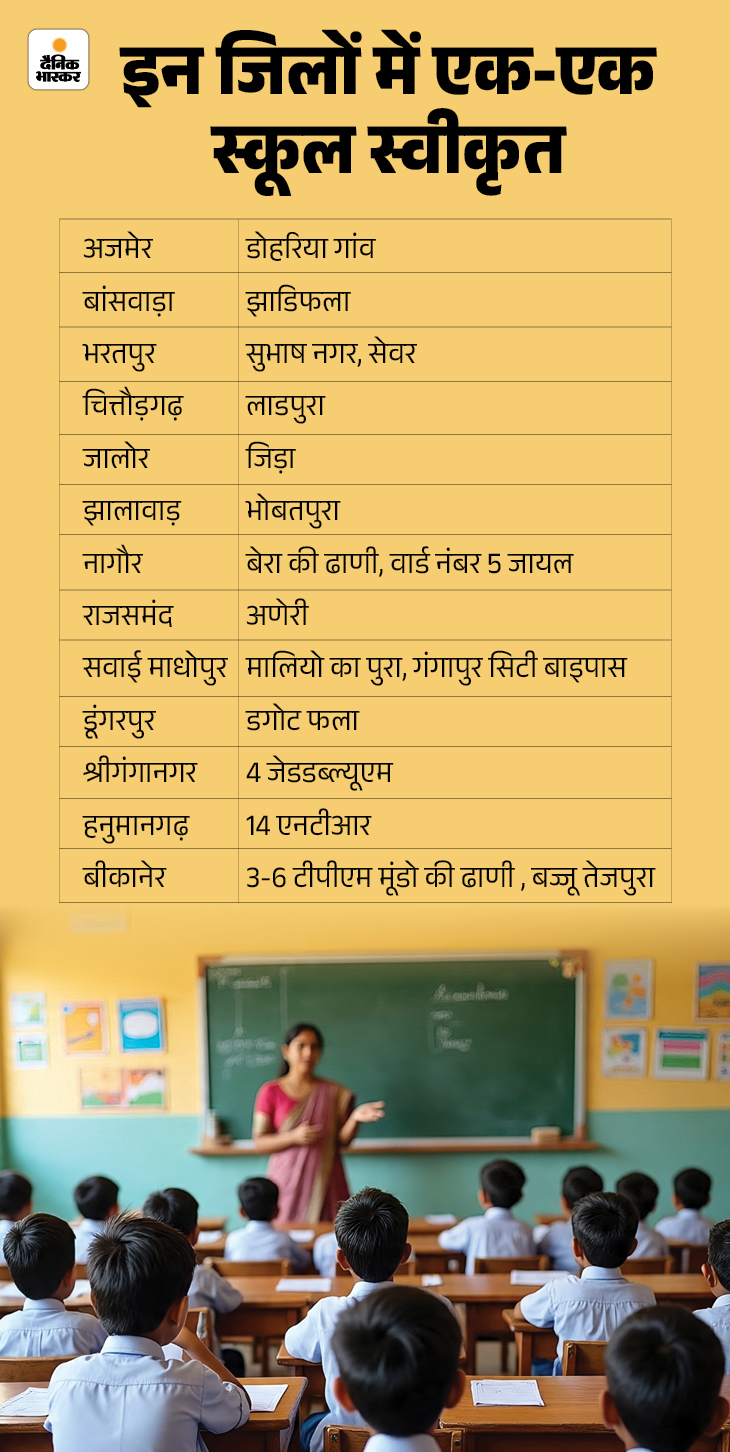 दैनिक
भास्कर
इन जिलों में एक-एक
स्कूल स्वीकृत
अजमेर डोहरिया गांव
बांसवाड़ा झाडिफला
भरतपुर सुभाष नगर, सेवर
चित्तौड़गढ़ लाडपुरा
जालोर जिड़ा
झालावाड़ भोबतपुरा
नागौर बेरा की ढाणी, वार्ड नंबर 5 जायल
राजसमंद अणेरी
सवाई माधोपुर मालियो का पुरा, गंगापुर सिटी बाइपास
डूंगरपुर डगोट फला
श्रीगंगानगर 4 जेडडब्ल्यूएम
हनुमानगढ़ 14 एनटीआर
बीकानेर 3-6 टीपीएम मूंडो की ढाणी , बज्जू तेजपुरा